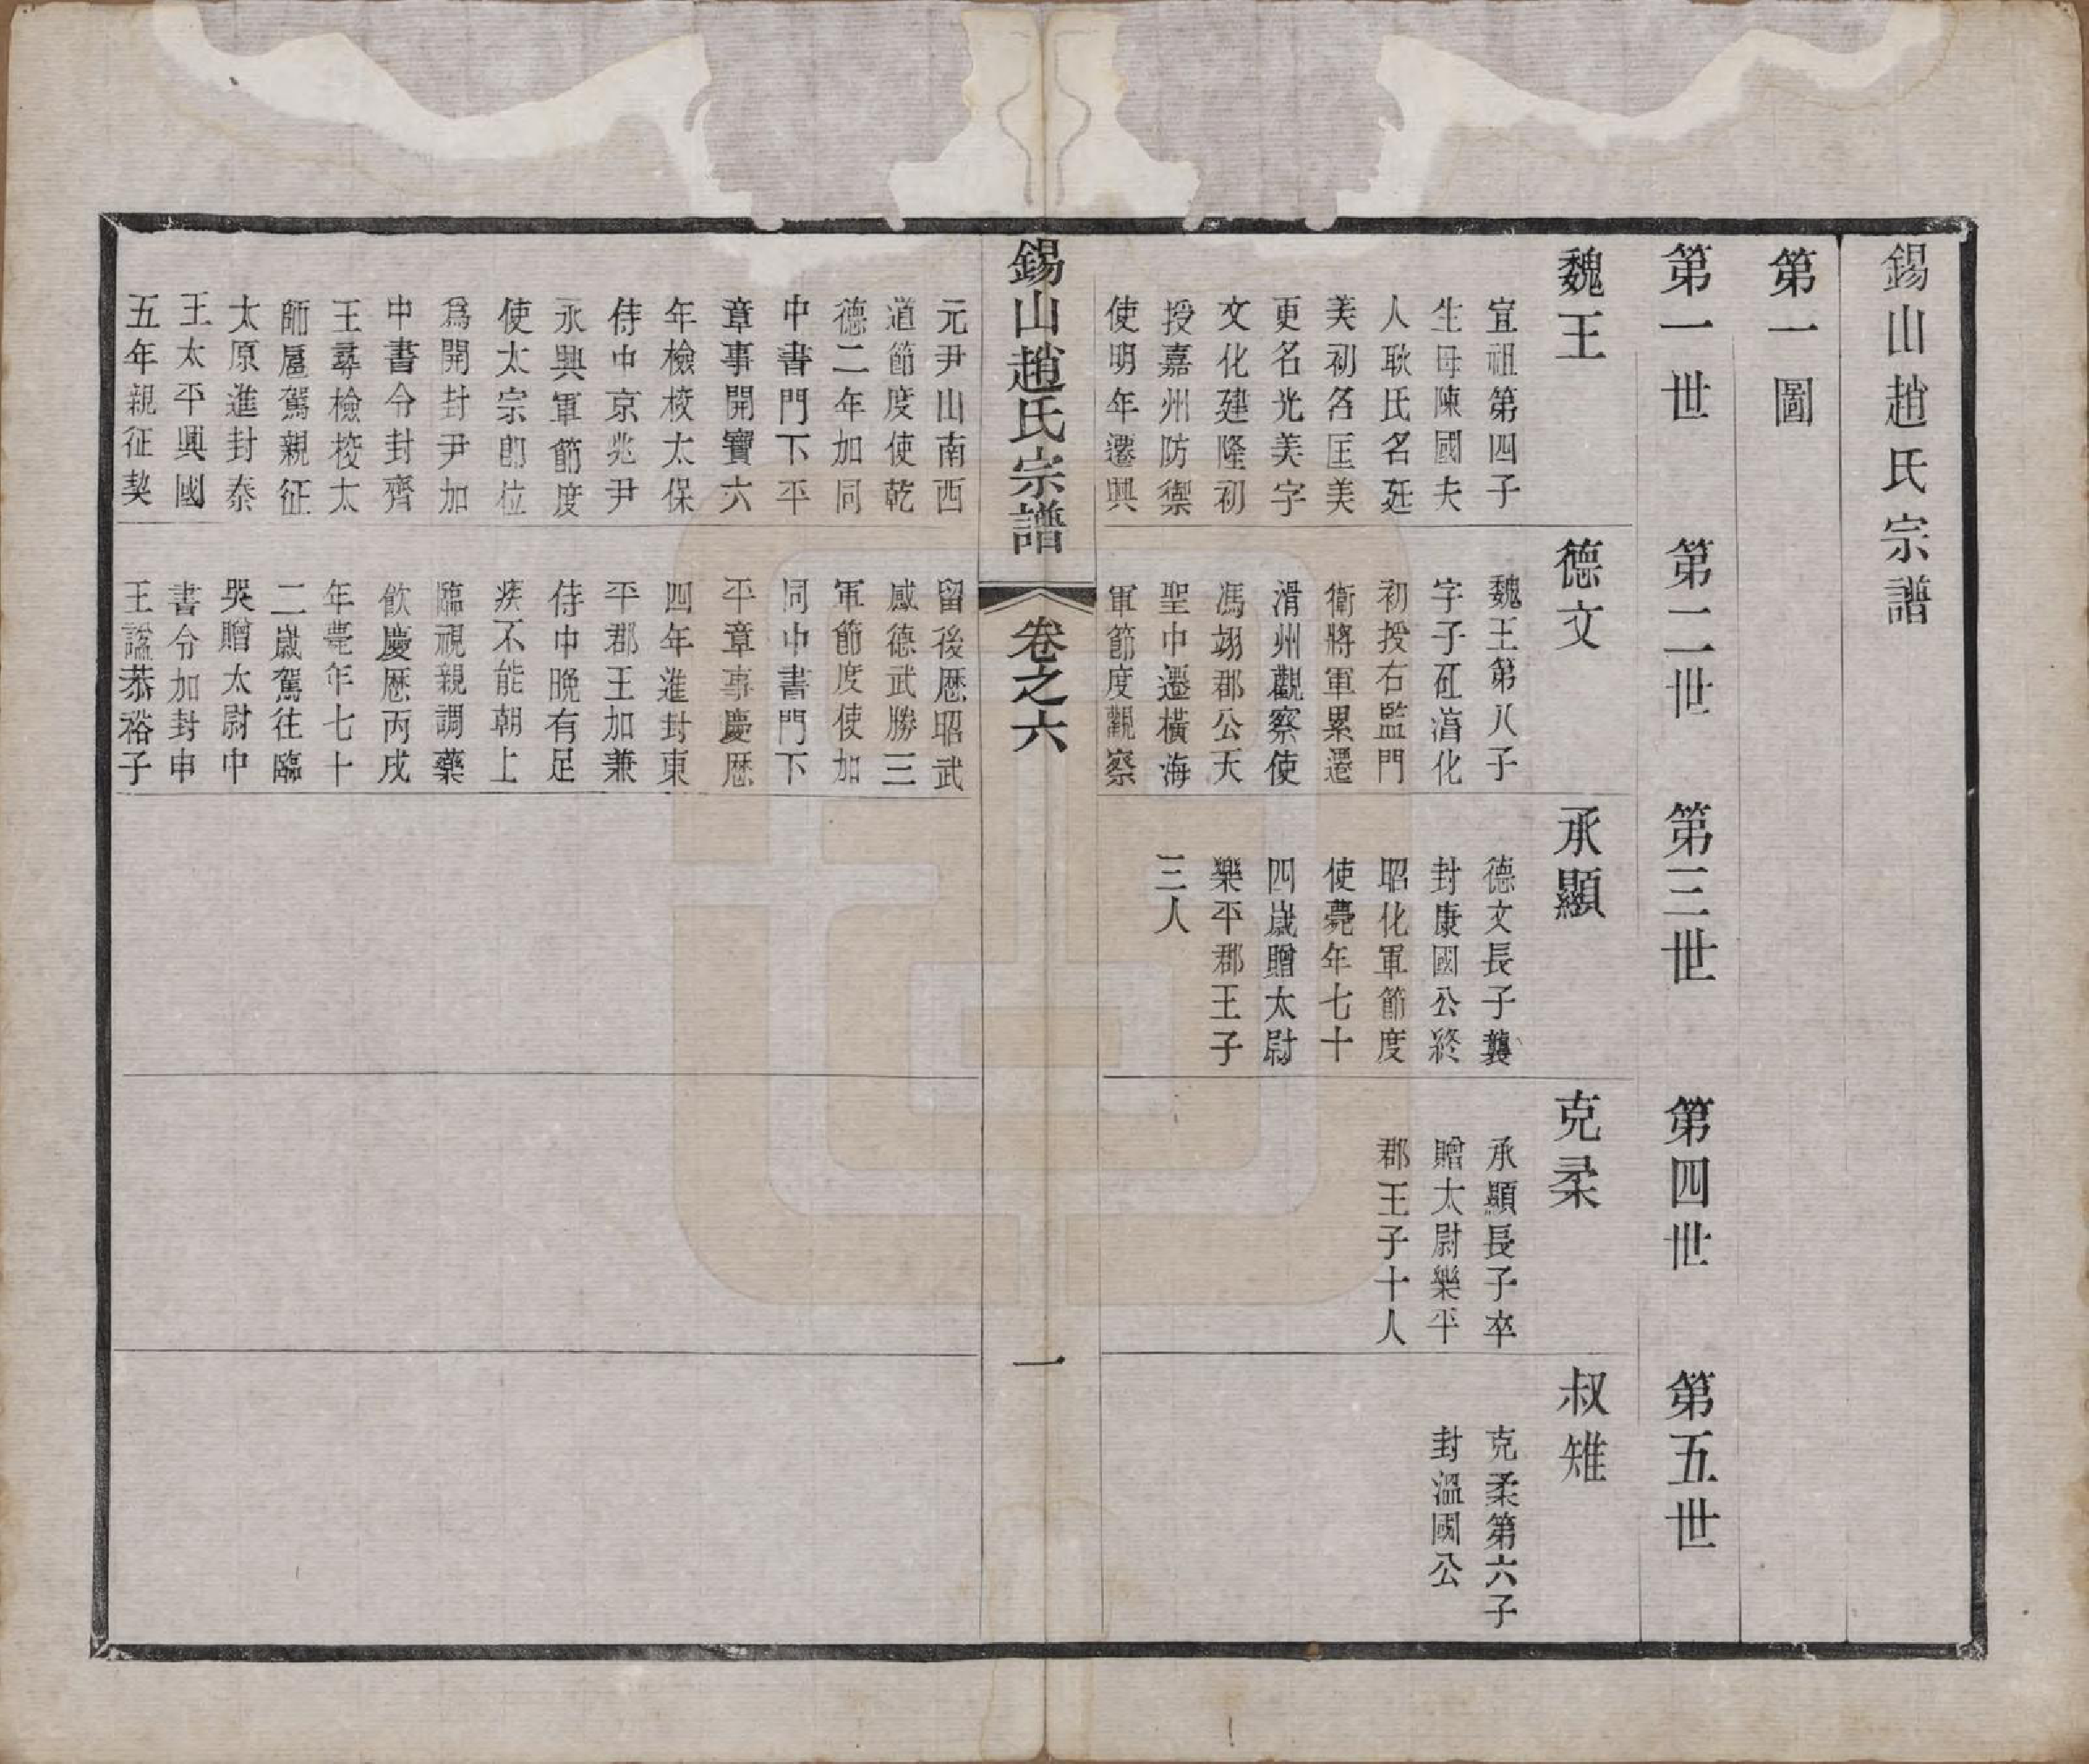 錫山趙氏宗譜
第一圖
第一世
第二世
第三世
第四世
第五世
魏王
宣祖第四子
生母陳國夫
人耿氏名廷
美初名匡美
更名光美字
文化建隆初
授嘉州防禦
使明年遷興
元尹山南西
道節度使乾
德二年加同
中書門下平
章事開寶六
年檢校太保
侍中京兆尹
永興軍節度
使太宗卽位
爲開封尹加
中書令封齊
王尋檢校太
師扈駕親征
太原進封秦
王太平興國
五年親征契
德文
魏王第八子
字子矼淯化
初授右監門
衛將軍累遷
滑州觀察使
馮翊郡公天
聖中遷橫海
軍節度觀察
留後歷昭武
感德武勝三
軍節度使加
同中書門下
平章事慶歷
四年進封東
平郡王加兼
侍中晩有足
疾不能朝上
臨視親調藥
飮慶歷丙戌
年薨年七十
二歲駕往臨
哭贈太尉中
書令加封申
王諡恭裕子
承顯
德文長子襲
封康國公終
昭化軍節度
使薨年七十
四歲贈太尉
樂平郡王子
三人
克柔
承顯長子卒
贈太尉樂平
郡王子十人
叔雉
克柔第六子
封溫國公
錫山趙氏宗譜
卷之六
一